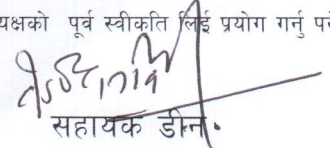 यक्षको पूर्व स्वीकृति लिई प्रयोग गर्नु पर्ने
सहायक डीन.